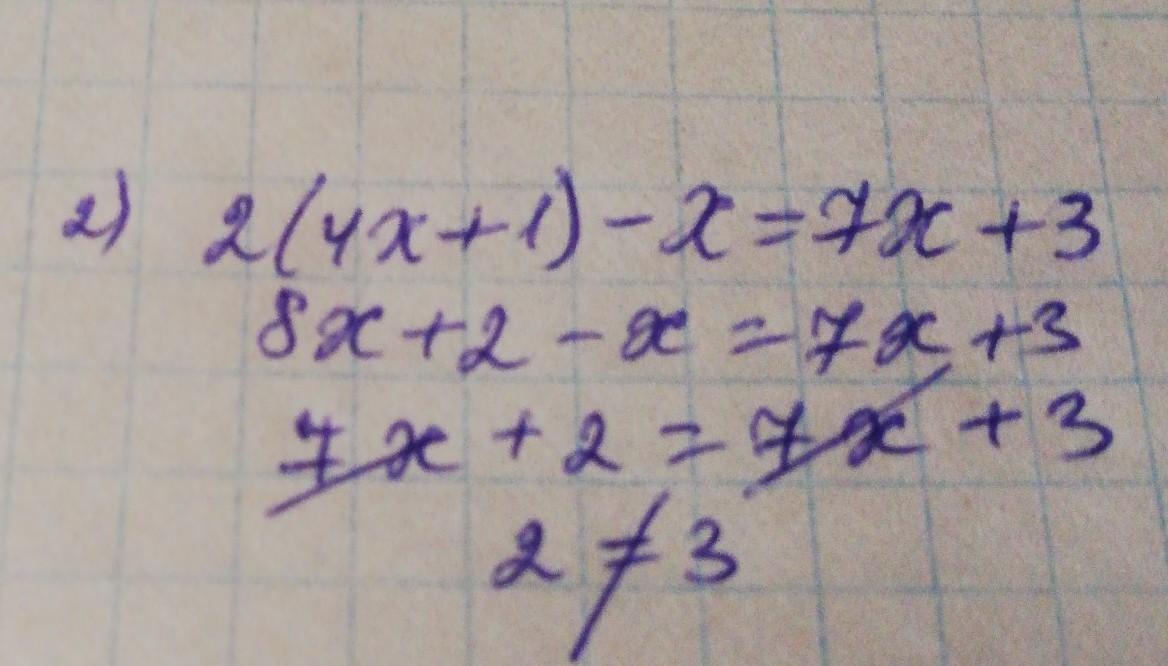 2) 2(4x+1)-x=7x+3
8x+2-x=7x+3
7x+2=7x+3
2≠3